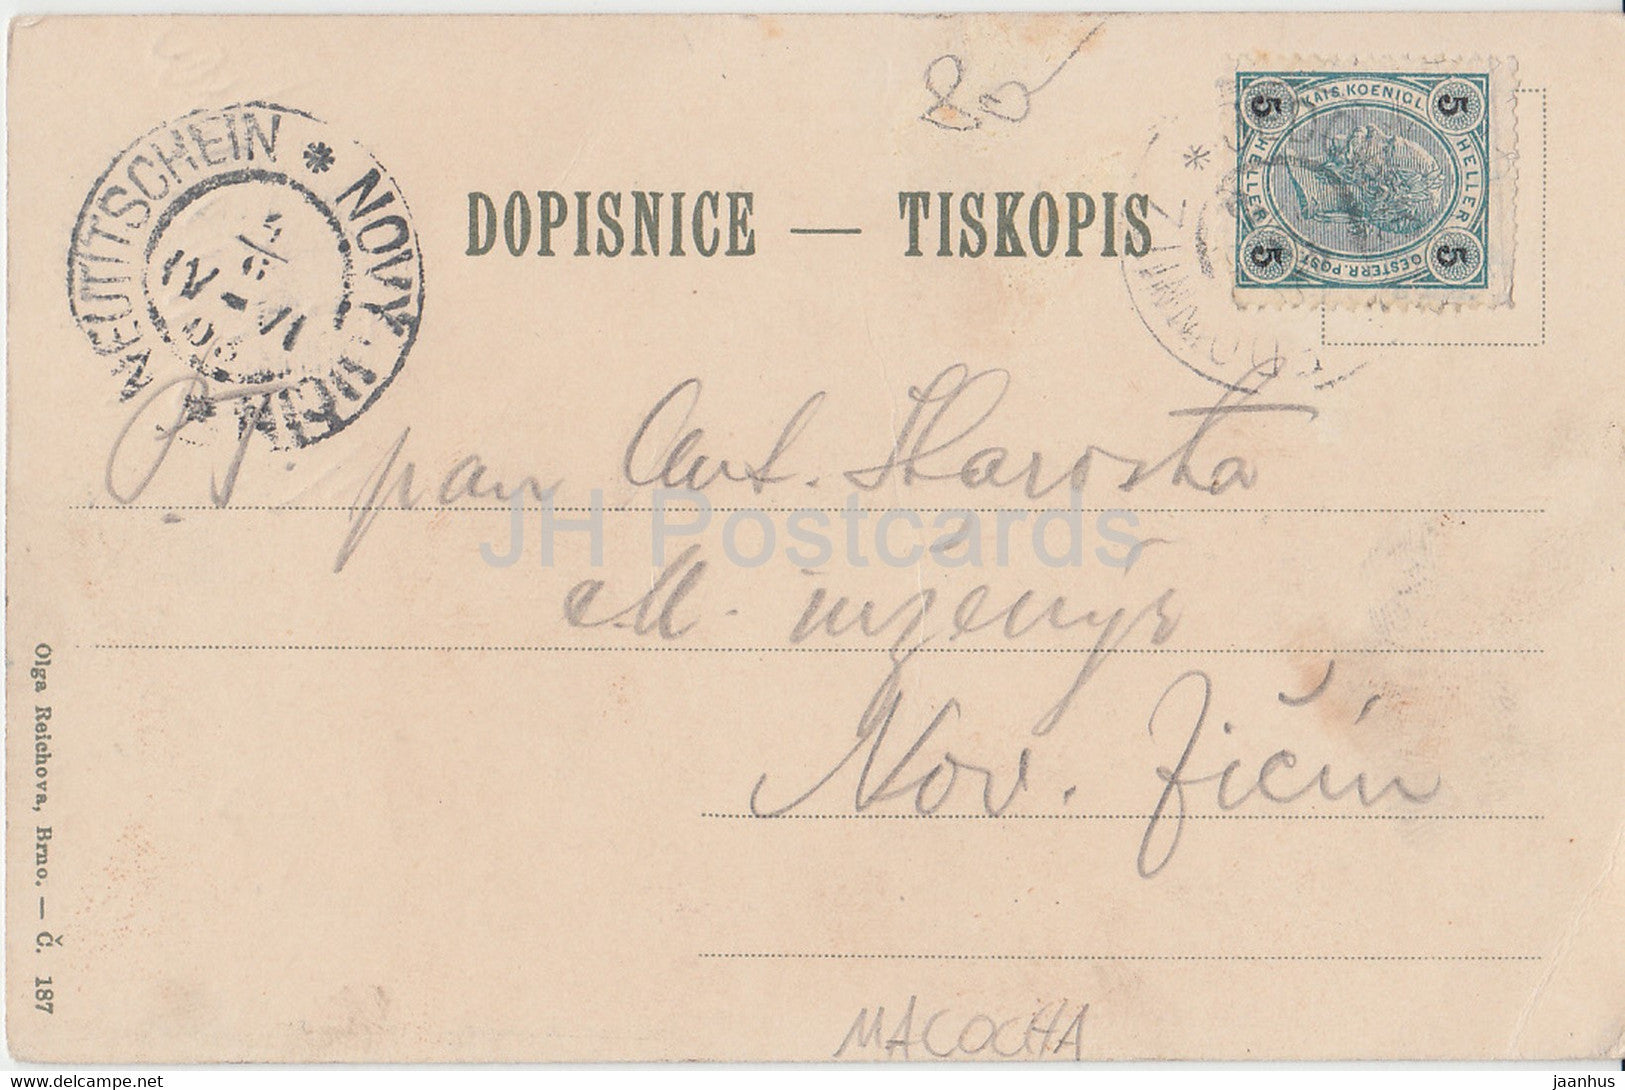 80
DOPISNICE — TISKOPIS
NEUTITSCHEIN * NOVÝ JIČÍN *
KAIS. KOENIGL. OESTERR. POST
5 HELLER 5 HELLER 5 5
P. T. pan Ant. Starosta
inženýr
Nov. Jičín
Olga Reichova, Brno. — Č. 187
MACOCHA
JH Postcards
jaanhus © www.delcampe.net